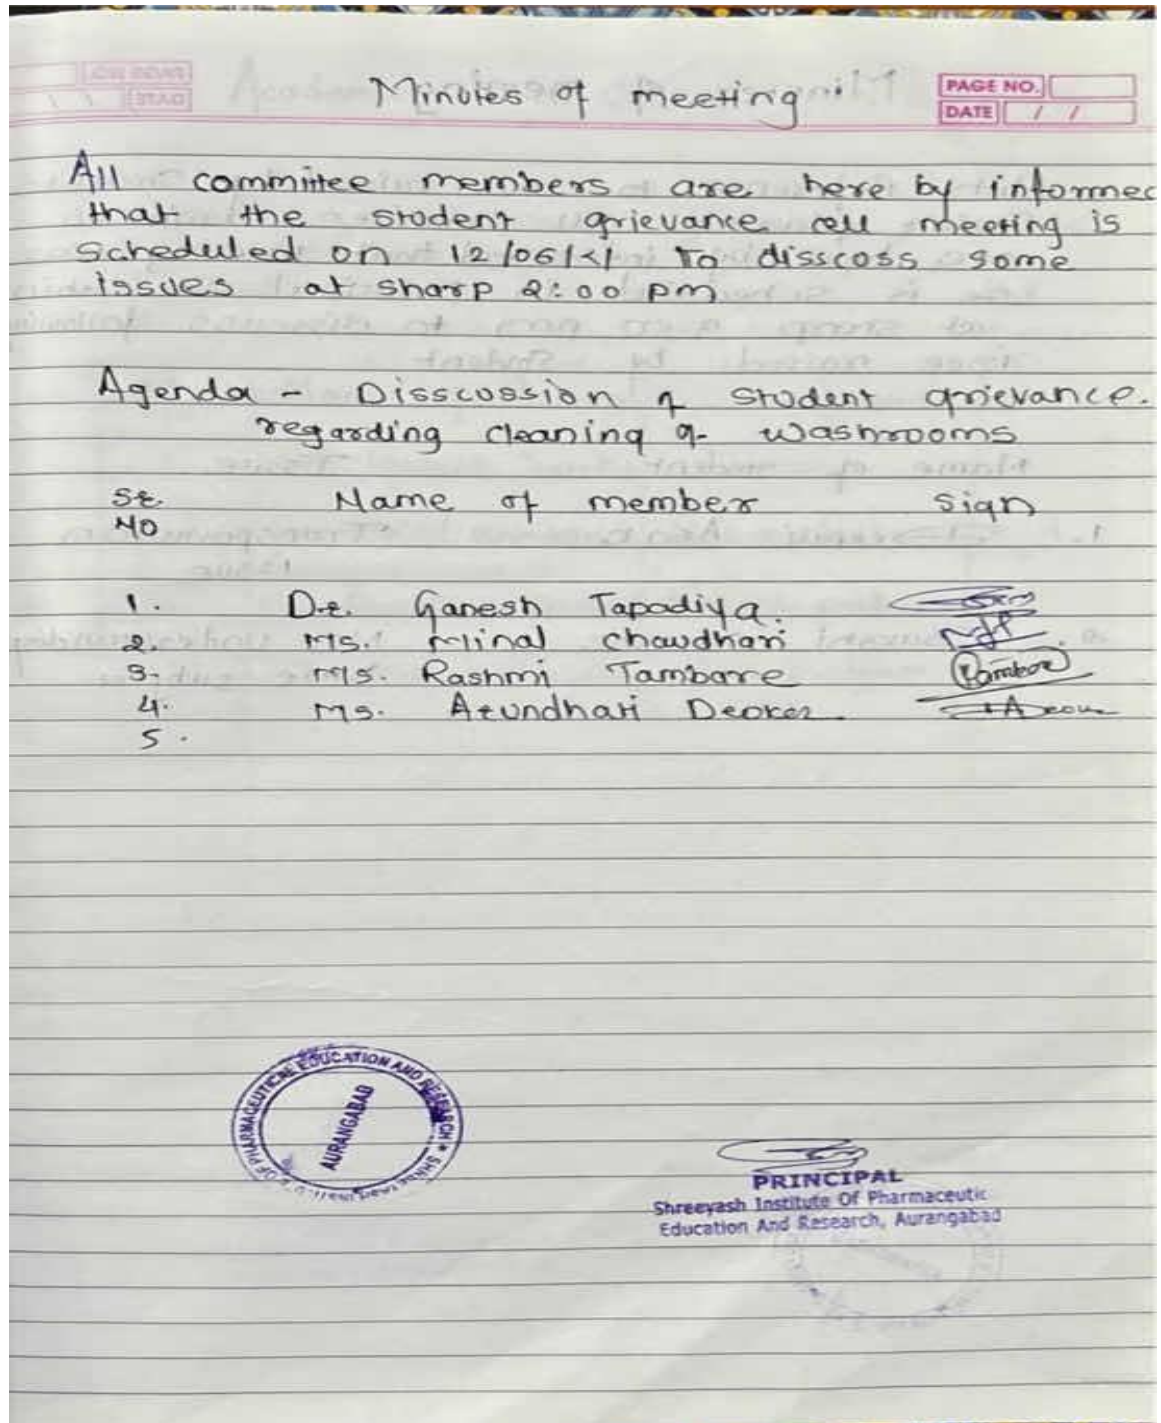 Minutes of meeting
PAGE NO.
DATE / /
All committee members are here by informed
that the student grievance cell meeting is
scheduled on 12/06/21 to disscoss some
issues at sharp 2:00 pm
Agenda - Disscussion of student grievance.
regarding cleaning of washrooms
Sr. Name of member Sign
NO
1. Dr. Ganesh Tapadiya.
2. Ms. Minal Chaudhari
3. Ms. Rashmi Tambare
4. Ms. Arundhari Deoker.
5.
OF PHARMACEUTICAL EDUCATION AND RESEARCH
AURANGABAD
PRINCIPAL
Shreeyash Institute Of Pharmaceutic
Education And Research, Aurangabad